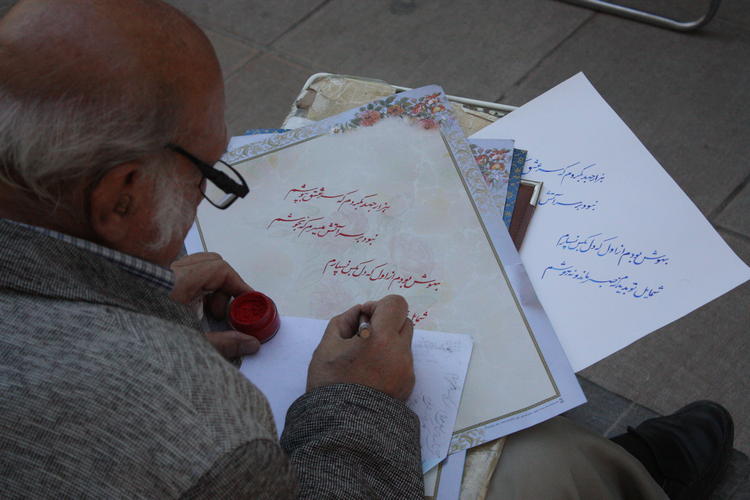 هزار جهد بکردم که سر عشق بپوشم
نبود بر سر آتش میسرم که نجوشم
بهوش بودم از اول که دل بکس نسپارم
شمایل
هزار جهد بکردم که سر عشق
نبود بر سر آتش
بهوش بودم از اول که دل بکس نسپارم
شمایل تو بدیدم نه صبر ماند و نه هوشم